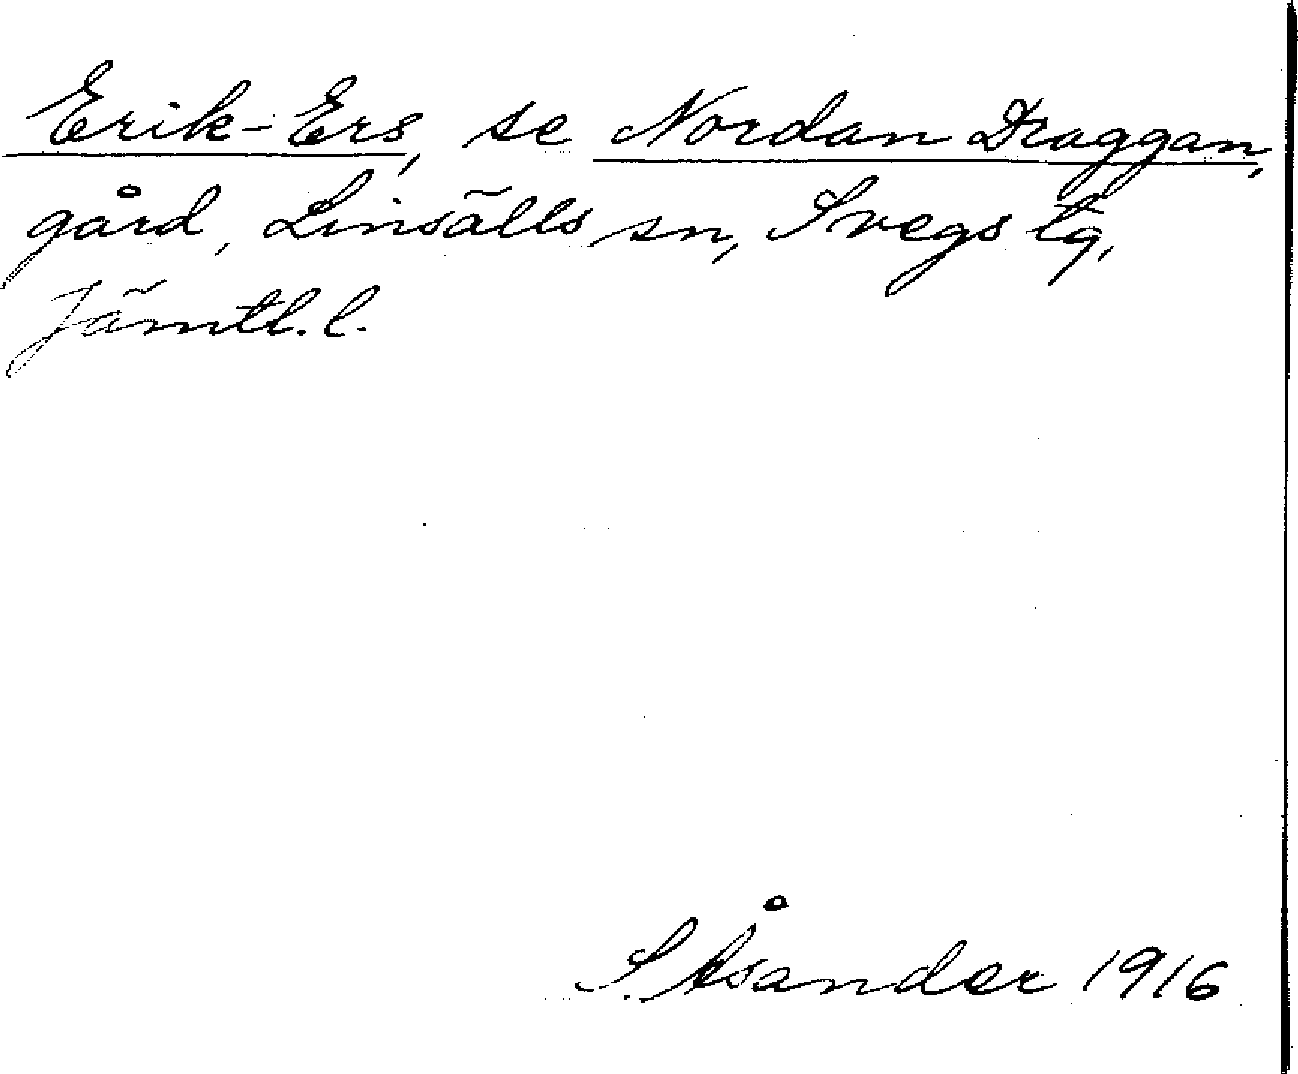 Erik-Ers, se Nordan Draggan,
gård, Linsälls sn, Svegs tg,
Jämtl. l.
S. Åsander 1916